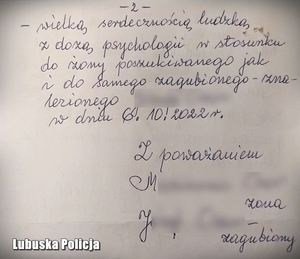 - 2 -
- wielką serdecznością ludzką
z dozą psychologii w stosunku
do żony poszukiwanego jak
i do samego zagubionego - zna-
lezionego
w dniu 8. 10! 2022 r.
Z poważaniem
M
żona
J
zagubiony
Lubuska Policja